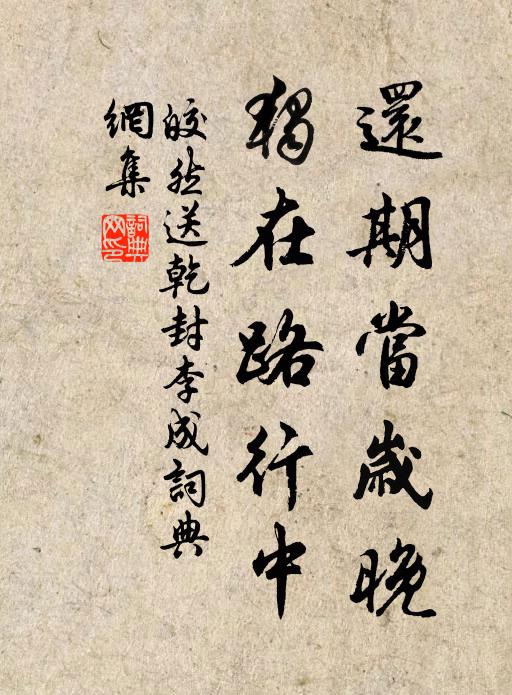 還期當歲晚
獨在路行中
皎然送乾封李成詞典
網集
詞典网印